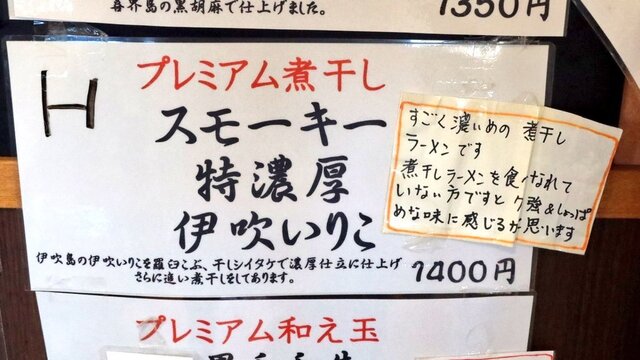 喜界島の黒胡麻で仕上げました。
1350円
H
プレミアム煮干し
スモーキー
特濃厚
伊吹いりこ
伊吹島の伊吹いりこを羅臼こぶ、干しシイタケで濃厚仕立に仕上げ
さらに追い煮干しをしてあります。
1400円
すごく濃いめの 煮干し
ラーメンです
煮干しラーメンを食べなれて
いない方ですと ク強&しょっぱ
めな味に感じるが思います
プレミアム和え玉